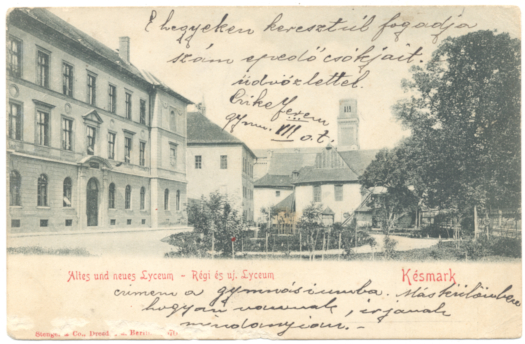 E hegyeken keresztül fogadja
szám epedő csókjait
üdvözlettel.
Altes und neues Lyceum – Régi és uj Lyceum
Késmark
czimem a gymnásiumba. Máskülönben
hogyan vannak, irjanak
mindannyian.
Stengel & Co., Dresd